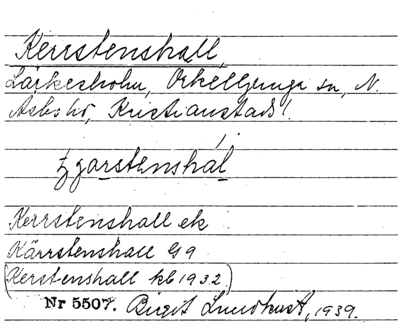 Kerrstenshall
Lärkesholm, Örkelljunga sn, N.
Åsbo hd, Kristianstads l.
Kerrstenshall ek
Kärrstenshall G9
(Kerstenshall kb 1932)
Nr 5507. Birgit Lundkvist, 1939.